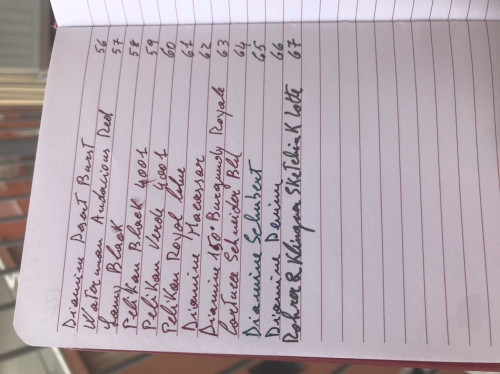 Diamine Desert Burst 56
Waterman Audacious Red 57
Lamy Black 58
Pelikan Black 4001 59
Pelikan Verde 4001 60
Pelikan Royal blue 61
Diamine Macassar 62
Diamine 150° Burgundy Royale 63
Cartucce Schneider Blu 64
Diamine Schubert 65
Diamine Denim 66
Rohrer & Klingner SketchINK Lotte 67